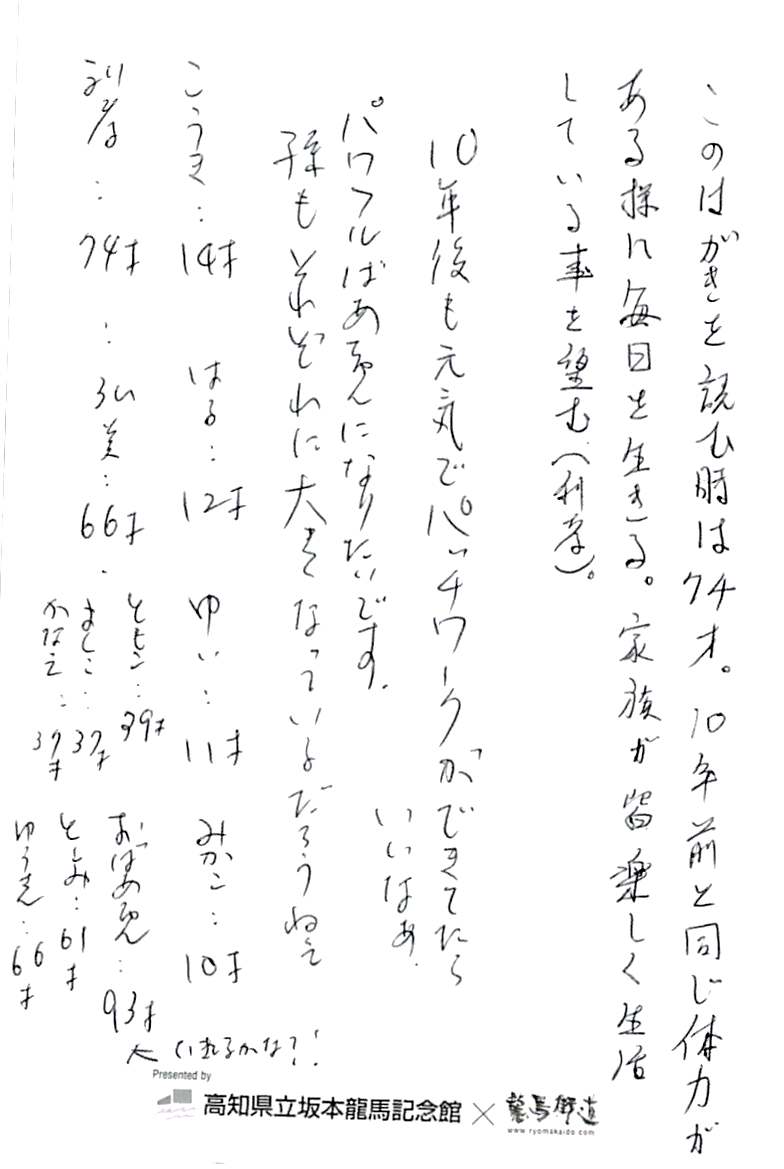 このはがきを読む時は74才。10年前と同じ体力が
ある様に毎日を生きる。家族が皆楽しく生活
している事を望む(利孝)。
10年後も元気でパッチワークができてたら
いいなあ.
パワフルばあちゃんになりたいです.
孫もそれぞれに大きくなっているだろうねえ
こうき:14才 はる:12才 ゆい:11才 みかこ:10才
利孝:74才 : ひろ美:66才.
ともこ:39才
まして:37才
かなえ:37才
おばあちゃん:93才
← いれるかな?!
としみ:61才
ゆうき:66才
Presented by
高知県立坂本龍馬記念館 × 龍馬街道
www.ryomakaido.com